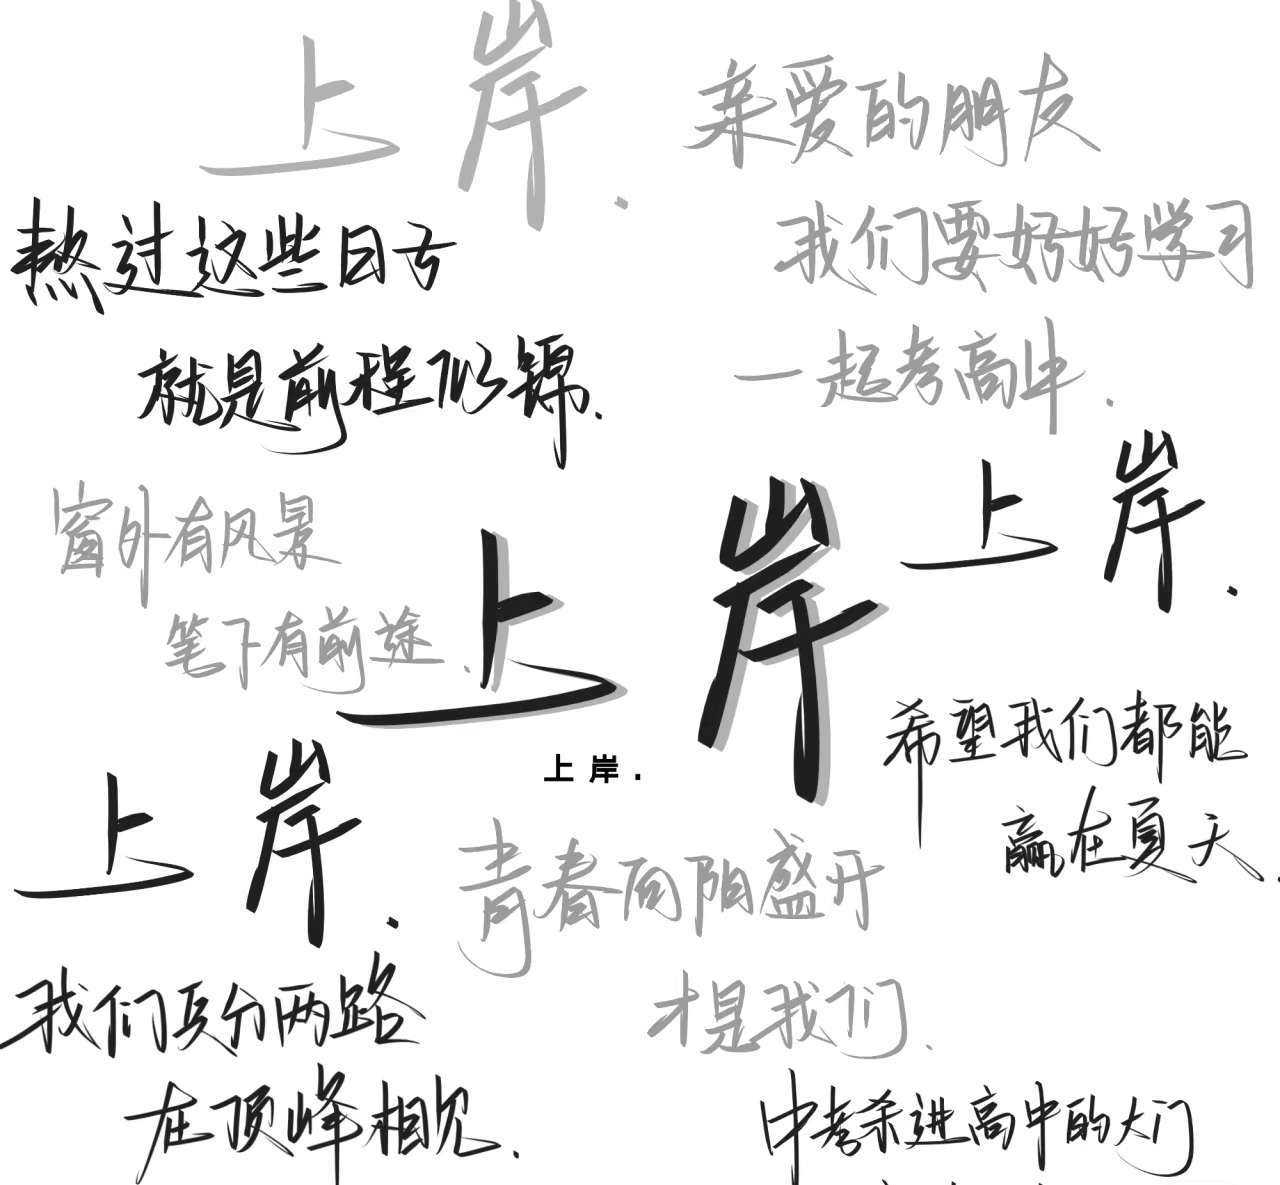 上岸.
亲爱的朋友
我们要好好学习
一起考高中.
熬过这些日子
就是前程似锦.
窗外有风景
笔下有前途.
上岸.
上岸
上岸.
希望我们都能
赢在夏天.
上岸.
青春向阳盛开
才是我们.
我们兵分两路
在顶峰相见.
中考杀进高中的大门